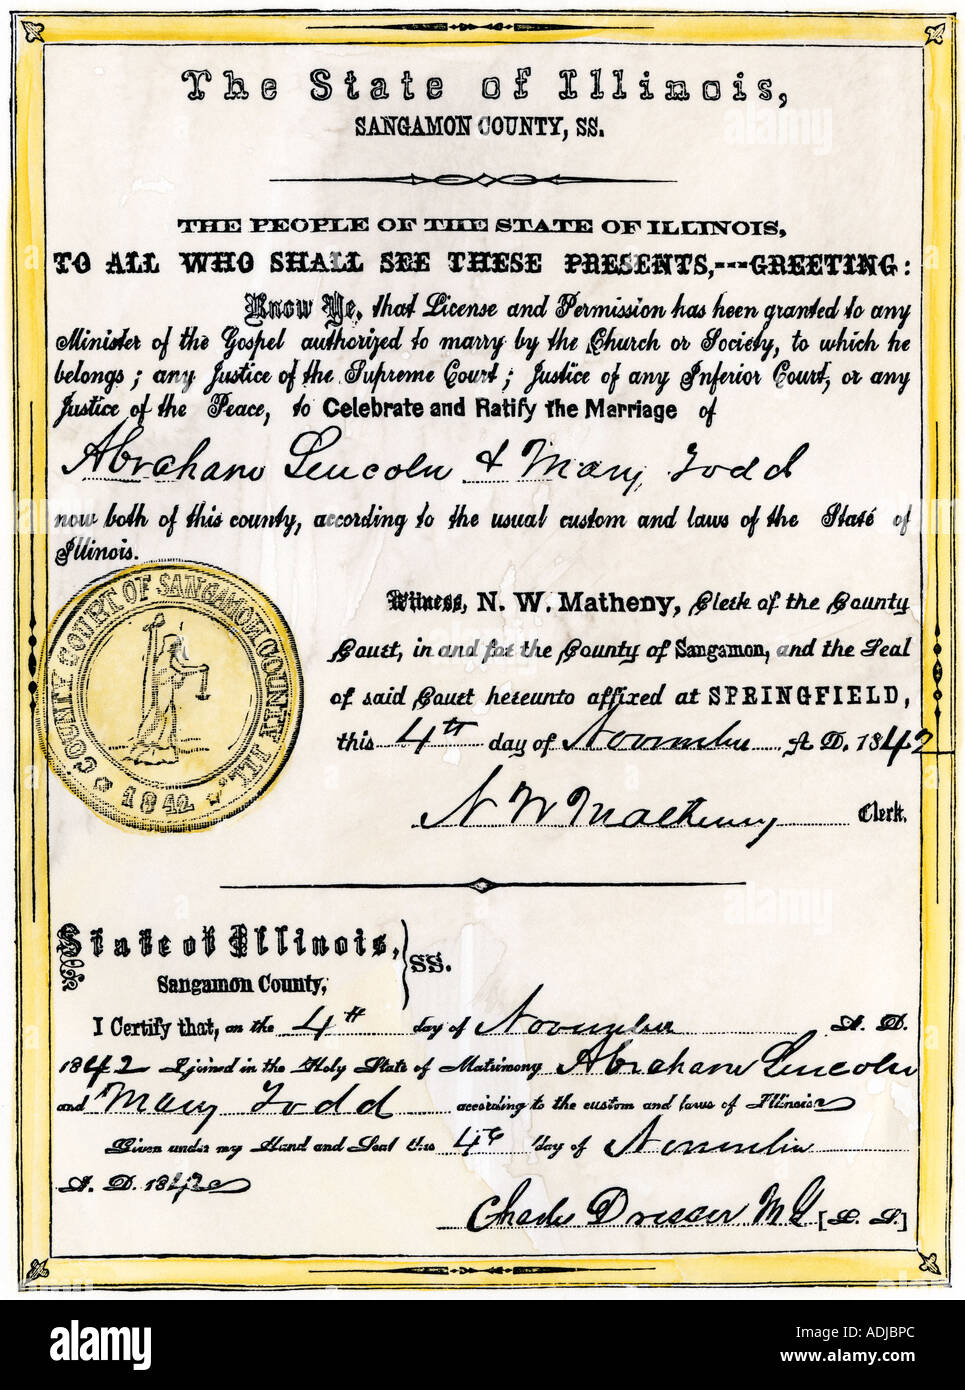 The State of Illinois,
SANGAMON COUNTY, SS.
THE PEOPLE OF THE STATE OF ILLINOIS,
TO ALL WHO SHALL SEE THESE PRESENTS,---GREETING:
Know Ye, that License and Permission has been granted to any
Minister of the Gospel authorized to marry by the Church or Society, to which he
belongs; any Justice of the Supreme Court; Justice of any Inferior Court, or any
Justice of the Peace, to Celebrate and Ratify the Marriage of
Abraham Lincoln & Mary Todd
now both of this county, according to the usual custom and laws of the State of
Illinois.
COUNTY COURT OF SANGAMON COUNTY ILL.
1842
Witness, N. W. Matheny, Clerk of the County
Court, in and for the County of Sangamon, and the Seal
of said Court hereunto affixed at SPRINGFIELD,
this 4th day of November A D. 1842
N W Matheny Clerk.
State of Illinois, SS.
Sangamon County,
I Certify that, on the 4th day of November A. D.
1842 I joined in the Holy State of Matrimony Abraham Lincoln
and Mary Todd according to the custom and laws of Illinois
Given under my Hand and Seal this 4th day of November
A. D. 1842
Charles Dresser M G [L. S.]
alamy
alamy
Image ID: ADJBPC
www.alamy.com